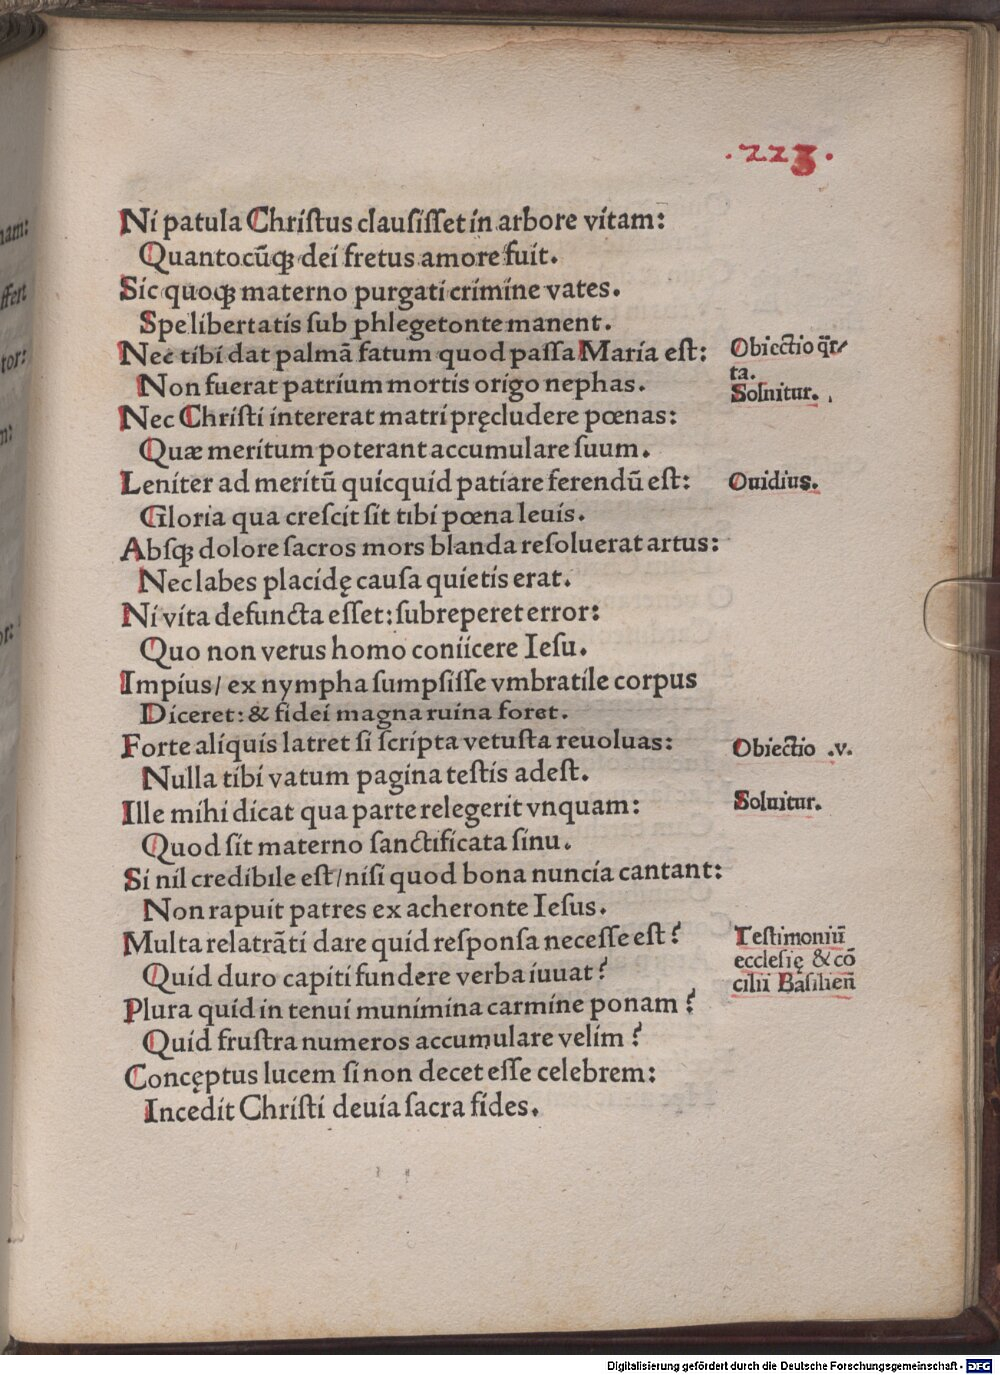 .223.
Ni patula Chriſtus clauſiſſet in arbore vitam:
Quantocūqꝫ dei fretus amore fuit.
Sic quoqꝫ materno purgati crimine vates.
Spe libertatis ſub phlegetonte manent.
Nec tibi dat palmā fatum quod paſſa Maria eſt:
Non fuerat patrium mortis origo nephas.
Nec Chriſti intererat matri pręcludere pœnas:
Quæ meritum poterant accumulare ſuum.
Leniter ad meritū quicquid patiare ferendū eſt:
Gloria qua creſcit ſit tibi pœna leuis.
Abſqꝫ dolore ſacros mors blanda reſoluerat artus:
Nec labes placidę cauſa quietis erat.
Ni vita defuncta eſſet: ſubreperet error:
Quo non verus homo coniicere Ieſu.
Impius/ ex nympha ſumpſiſſe vmbratile corpus
Diceret: & fidei magna ruina foret.
Forte aliquis latret ſi ſcripta vetuſta reuoluas:
Nulla tibi vatum pagina teſtis adeſt.
Ille mihi dicat qua parte relegerit vnquam:
Quod ſit materno ſanctificata ſinu.
Si nil credibile eſt/ niſi quod bona nuncia cantant:
Non rapuit patres ex acheronte Ieſus.
Multa relatrāti dare quid reſponſa neceſſe eſt?
Quid duro capiti fundere verba iuuat?
Plura quid in tenui munimina carmine ponam?
Quid fruſtra numeros accumulare velim?
Concęptus lucem ſi non decet eſſe celebrem:
Incedit Chriſti deuia ſacra fides.
Obiectio q̄r/
ta.
Soluitur.
Ouidius.
Obiectio .v.
Soluitur.
Teſtimoniū
eccleſię & cō
cilii Baſilieñ
ffert
tor:
Digitalisierung gefördert durch die Deutsche Forschungsgemeinschaft - DFG